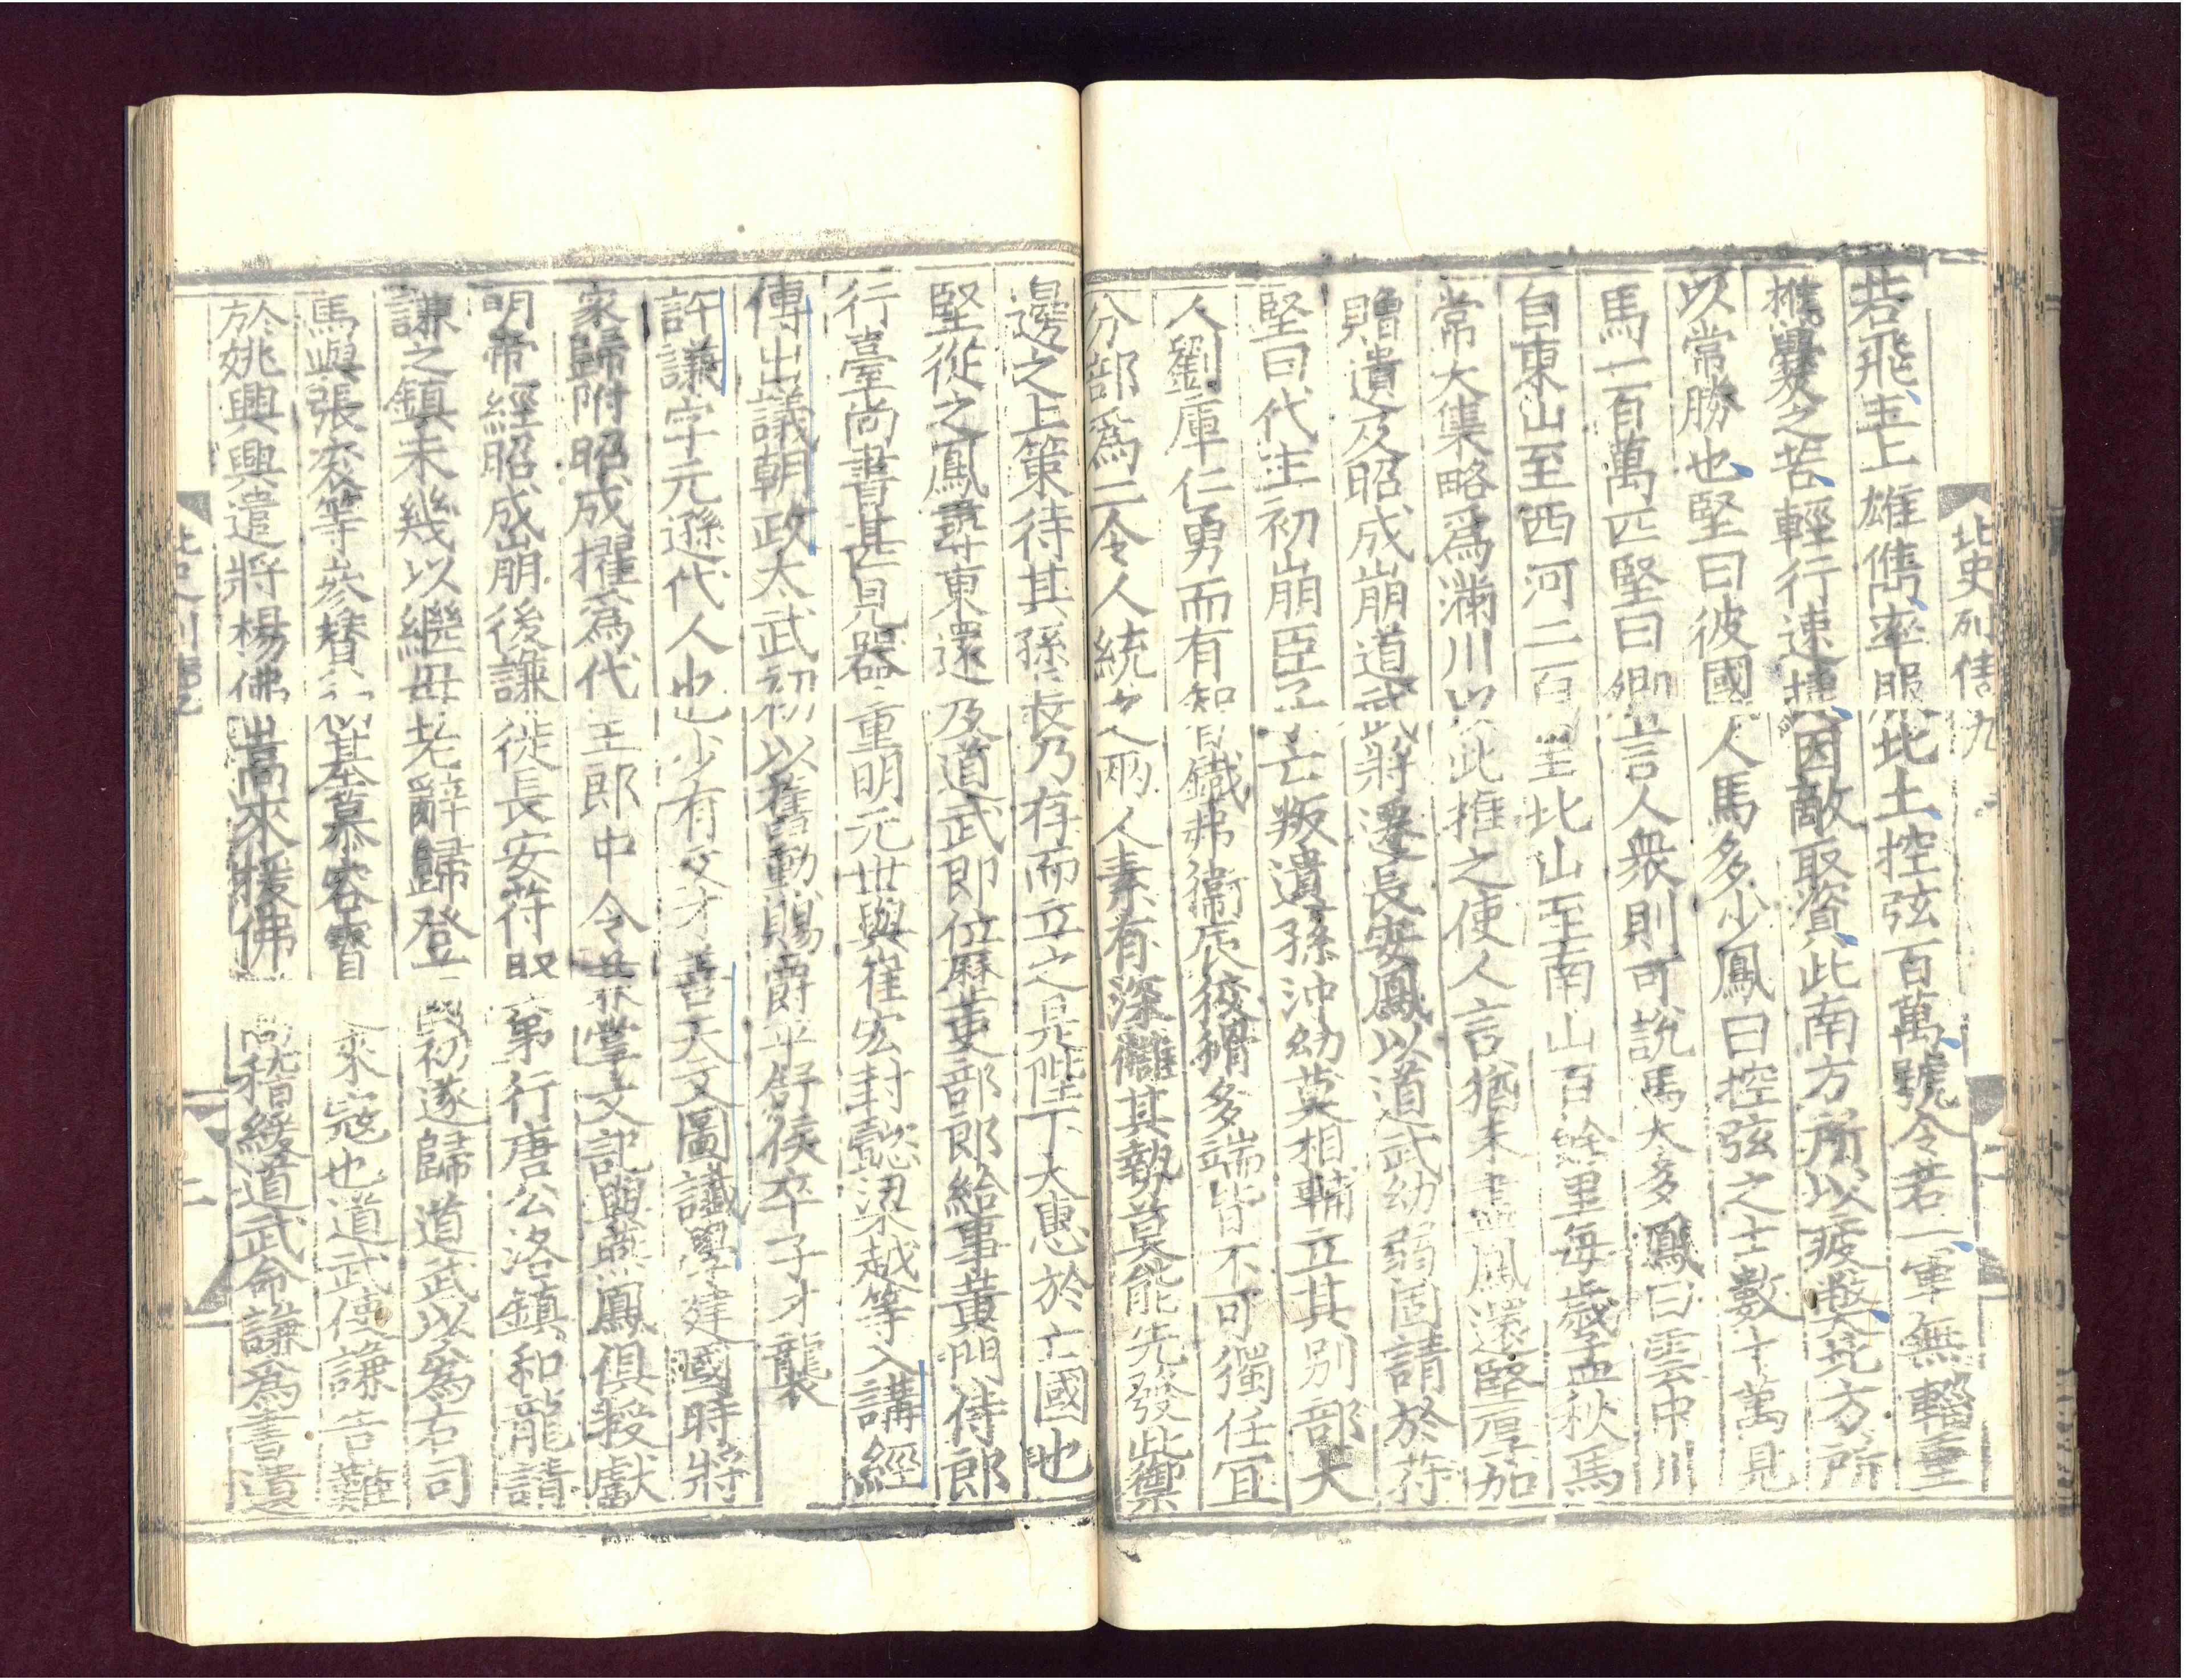 北史列傳九
二
若飛主上雄雋率服北土控弦百萬號令若一軍無輜重
樵爨之苦輕行速捷因敵取資此南方所以疲弊北方所
以常勝也堅曰彼國人馬多少鳳曰控弦之士數十萬見
馬一百萬匹堅曰卿言人衆則可說馬太多鳳曰雲中川
自東山至西河二百里北山至南山百餘里每歲孟秋馬
常大集略爲滿川以此推之使人言猶未盡鳳還堅厚加
贈遺及昭成崩道武將遷長安鳳以道武幼弱固請於苻
堅曰代主初崩臣子亡叛遺孫沖幼莫相輔立其別部大
人劉庫仁勇而有智鐵弗衞辰狡猾多端皆不可獨任宜
分部爲二令人統之兩人素有深讎其勢莫能先發此禦
邊之上策待其孫長乃存而立之是陛下大惠於亡國也
堅從之鳳尋東還及道武即位歷吏部郎給事黃門侍郎
行臺尚書甚見器重明元世與崔宏封懿梁越等入講經
傳出議朝政太武初以舊勳賜爵平舒侯卒子才襲
許謙字元遜代人也少有文才善天文圖讖學建國時將
家歸附昭成擢爲代王郎中令兼掌文記與燕鳳俱授獻
明帝經昭成崩後謙徙長安苻堅弟行唐公洛鎮和龍請
謙之鎮未幾以繼母老辭歸登國初遂歸道武以爲右司
馬與張袞等參贊初基慕容寶來寇也道武使謙告難
於姚興興遣將楊佛嵩來援佛嵩稽緩道武命謙爲書遺
北史列傳九
二